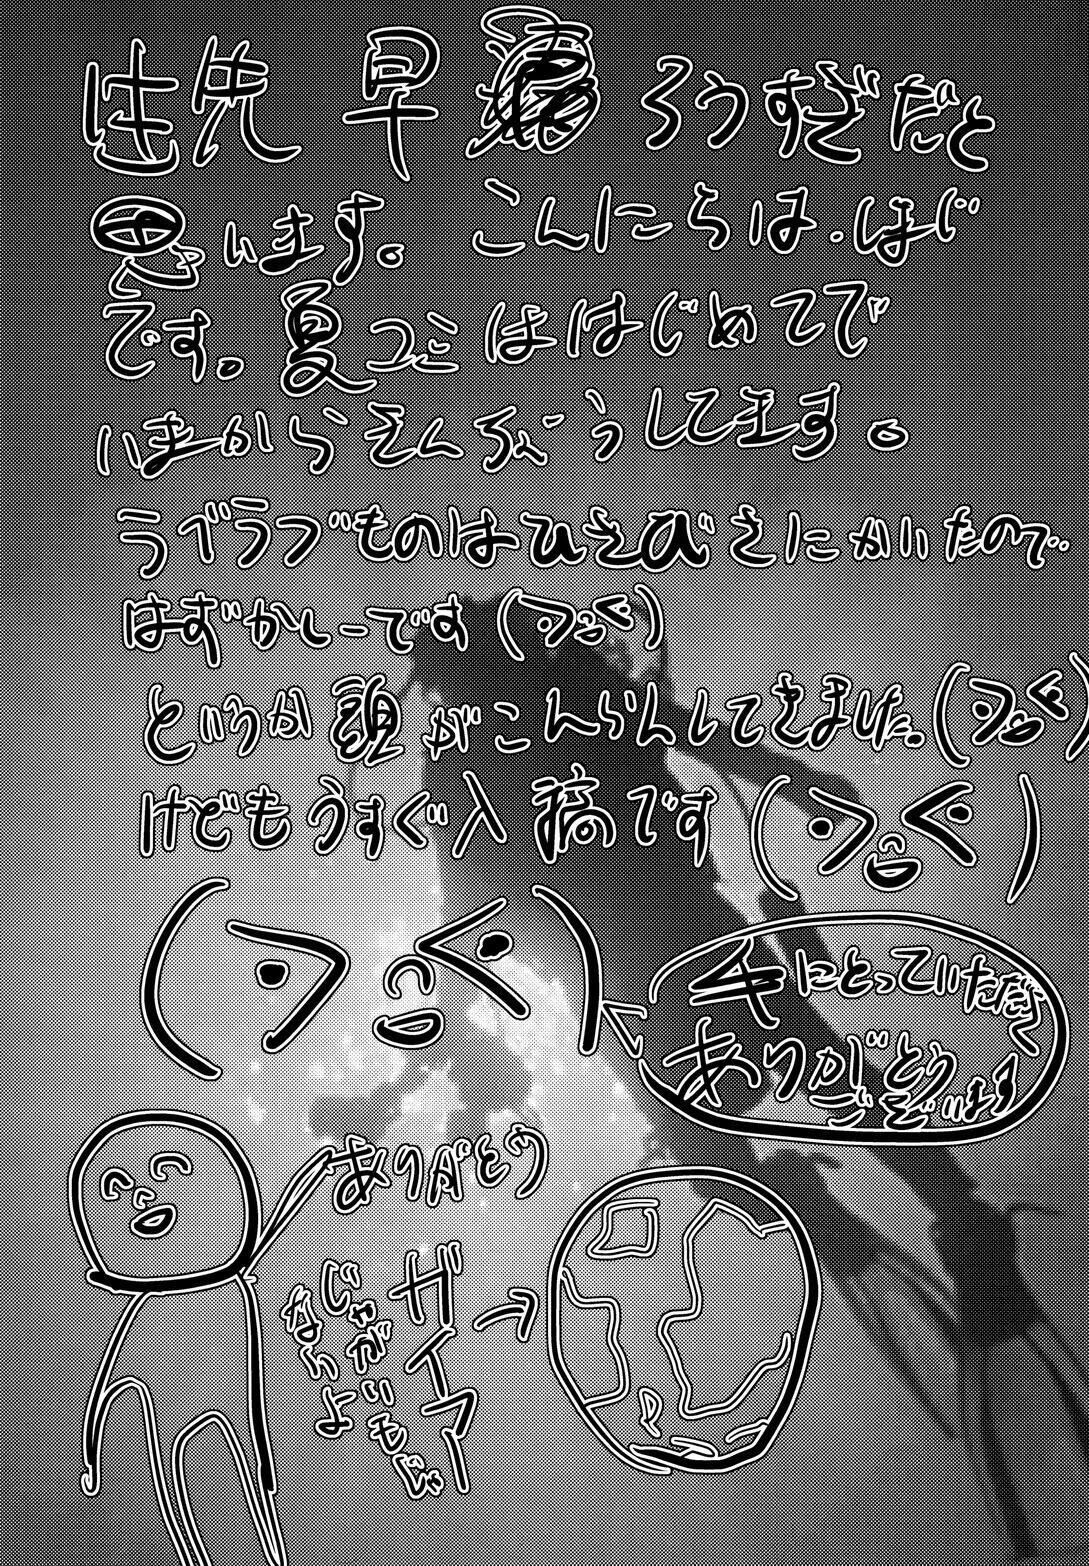 早 ろうすぎだと
思います。こんにちは。ほじ
です。夏コミははじめてで
いまからそんぶうしてます。
ラブラブものはひさびさにかいたので
はずかしーです
というか頭がこんらんしてきました。
けどもうすぐ入稿です
手にとっていただく
ありがとう
ございます
ありがとう
ガイアー
じゃがいもじゃ
ないよ